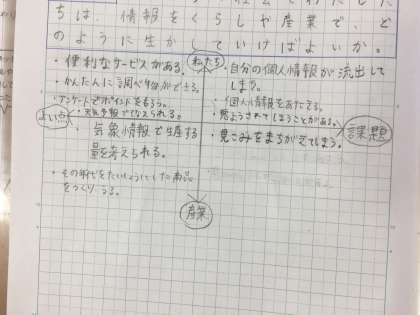 ちは、情報をくらしや産業で、ど
のように生かしていけばよいか。
私たち
・便利なサービスがある。
・かんたんに調べ物ができる。
・アンケートでポイントをもらう。
・天気予報でそなえられる。
よい点
・気象情報で生産する
量を考えられる。
・その年代をたいしょうにした商品
をつくり うる。
・自分の個人情報が流出して
しまう。
・個人情報をあたえる。
・悪ようされてしまうことがある。
・見こみをまちがえてしまう。
課題
産業